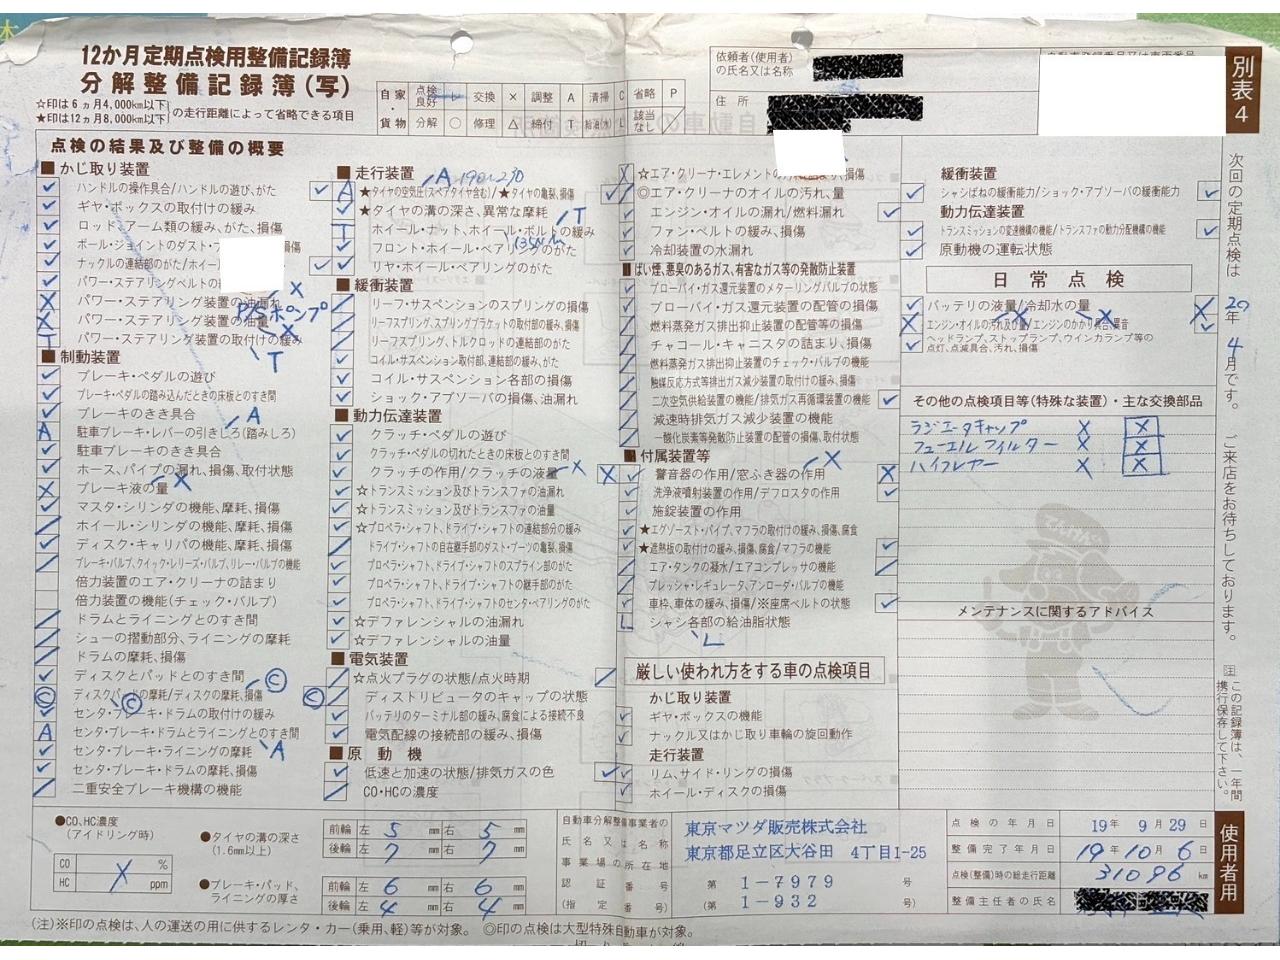 12か月定期点検用整備記録簿
分解整備記録簿(写)
☆印は6ヵ月4,000km以下
★印は12ヵ月8,000km以下
の走行距離によって省略できる項目
自家・貨物
点検良好 レ 交換 × 調整 A 清掃 C 省略 P
分解 ○ 修理 △ 締付 T 給油(水) L 該当なし ／
依頼者(使用者)の氏名又は名称
住所
別表4
点検の結果及び整備の概要
■かじ取り装置
ハンドルの操作具合/ハンドルの遊び、がた
ギヤ・ボックスの取付けの緩み
ロッド、アーム類の緩み、がた、損傷
ボール・ジョイントのダスト・ブ 損傷
ナックルの連結部のがた/ホイー
パワー・ステアリングベルトの
パワー・ステアリング装置の油漏れ ×
パワー・ステアリング装置の油量 P/Sポンプ
パワー・ステアリング装置の取付けの緩み ×
T
■制動装置
ブレーキ・ペダルの遊び
ブレーキ・ペダルの踏み込んだときの床板とのすき間
ブレーキのきき具合 A
駐車ブレーキ・レバーの引きしろ(踏みしろ)
駐車ブレーキのきき具合
ホース、パイプの漏れ、損傷、取付状態
ブレーキ液の量 ×
マスタ・シリンダの機能、摩耗、損傷
ホイール・シリンダの機能、摩耗、損傷
ディスク・キャリパの機能、摩耗、損傷
ブレーキ・バルブ、クイック・レリーズ・バルブ、リレー・バルブの機能
倍力装置のエア・クリーナの詰まり
倍力装置の機能(チェック・バルブ)
ドラムとライニングとのすき間
シューの摺動部分、ライニングの摩耗
ドラムの摩耗、損傷
ディスクとパッドとのすき間 Ⓒ
ディスクパッドの摩耗/ディスクの摩耗、損傷
センタ・ブレーキ・ドラムの取付けの緩み
センタ・ブレーキ・ドラムとライニングとのすき間
センタ・ブレーキ・ライニングの摩耗 A
センタ・ブレーキ・ドラムの摩耗、損傷
二重安全ブレーキ機構の機能
■走行装置 A
★タイヤの空気圧(スペアタイヤ含む)/★タイヤの亀裂、損傷
★タイヤの溝の深さ、異常な摩耗 T
ホイール・ナット、ホイール・ボルトの緩み
フロント・ホイール・ベアリングのがた
リヤ・ホイール・ベアリングのがた
■緩衝装置
リーフ・サスペンションのスプリングの損傷
リーフスプリング、スプリングブラケットの取付部の緩み、損傷
リーフスプリング、トルクロッドの連結部のがた
コイル・サスペンション取付部、連結部の緩み、がた
コイル・サスペンション各部の損傷
ショック・アブソーバの損傷、油漏れ
■動力伝達装置
クラッチ・ペダルの遊び
クラッチ・ペダルの切れたときの床板とのすき間
クラッチの作用/クラッチの液量 ×
☆トランスミッション及びトランスファの油漏れ
☆トランスミッション及びトランスファの油量
☆プロペラ・シャフト、ドライブ・シャフトの連結部分の緩み
ドライブ・シャフトの自在継手部のダスト・ブーツの亀裂、損傷
プロペラ・シャフト、ドライブ・シャフトのスプライン部のがた
プロペラ・シャフト、ドライブ・シャフトの継手部のがた
プロペラ・シャフト、ドライブ・シャフトのセンタ・ベアリングのがた
☆デファレンシャルの油漏れ
☆デファレンシャルの油量
■電気装置
☆点火プラグの状態/点火時期
ディストリビュータのキャップの状態
バッテリのターミナル部の緩み、腐食による接続不良
電気配線の接続部の緩み、損傷
■原動機
低速と加速の状態/排気ガスの色
CO・HCの濃度
☆エア・クリーナ・エレメントの 損傷
◎エア・クリーナのオイルの汚れ、量
エンジン・オイルの漏れ/燃料漏れ
ファン・ベルトの緩み、損傷
冷却装置の水漏れ
■ばい煙、悪臭のあるガス、有害なガス等の発散防止装置
ブローバイ・ガス還元装置のメターリングバルブの状態
ブローバイ・ガス還元装置の配管の損傷
燃料蒸発ガス排出抑止装置の配管等の損傷
チャコール・キャニスタの詰まり、損傷
燃料蒸発ガス排出抑止装置のチェック・バルブの機能
触媒反応方式等排出ガス減少装置の取付けの緩み、損傷
二次空気供給装置の機能/排気ガス再循環装置の機能
減速時排気ガス減少装置の機能
一酸化炭素等発散防止装置の配管の損傷、取付状態
■付属装置等
警音器の作用/窓ふき器の作用 ×
洗浄液噴射装置の作用/デフロスタの作用
施錠装置の作用
★エグゾースト・パイプ、マフラの取付けの緩み、損傷、腐食
★遮熱板の取付けの緩み、損傷、腐食/マフラの機能
エア・タンクの凝水/エアコンプレッサの機能
プレッシャ・レギュレータ、アンローダ・バルブの機能
車枠、車体の緩み、損傷/※座席ベルトの状態
シャシ各部の給油脂状態
L
厳しい使われ方をする車の点検項目
かじ取り装置
ギヤ・ボックスの機能
ナックル又はかじ取り車輪の旋回動作
走行装置
リム、サイド・リングの損傷
ホイール・ディスクの損傷
緩衝装置
シャシばねの緩衝能力/ショック・アブソーバの緩衝能力
動力伝達装置
トランスミッションの変速機構の機能/トランスファの動力分配機構の機能
原動機の運転状態
日常点検
バッテリの液量/冷却水の量
エンジン・オイルの汚れ及び量/エンジンのかかり具合、異音
ヘッドランプ、ストップランプ、ウインカランプ等の
点灯、点滅具合、汚れ、損傷
その他の点検項目等(特殊な装置)・主な交換部品
ラジエータキャップ × ×
フューエルフィルター × ×
ハイフレヤー × ×
メンテナンスに関するアドバイス
次回の定期点検は20年4月です。ご来店をお待ちしております。
注 この記録簿は、一年間携行保存して下さい。
使用者用
●CO、HC濃度
(アイドリング時)
CO %
HC ppm
●タイヤの溝の深さ
(1.6mm以上)
前輪 左 5 mm 右 5 mm
後輪 左 7 mm 右 7 mm
●ブレーキ・パッド、
ライニングの厚さ
前輪 左 6 mm 右 6 mm
後輪 左 4 mm 右 4 mm
自動車分解整備事業者の
氏名又は名称
事業場の所在地
認証番号
(指定番号)
東京マツダ販売株式会社
東京都足立区大谷田 4丁目1-25
第 1-7979 号
(第 1-932 号)
点検の年月日 19年 9月 29日
整備完了年月日 19年 10月 6日
点検(整備)時の総走行距離 31096 km
整備主任者の氏名
(注)※印の点検は、人の運送の用に供するレンタ・カー(乗用、軽)等が対象。 ◎印の点検は大型特殊自動車が対象。